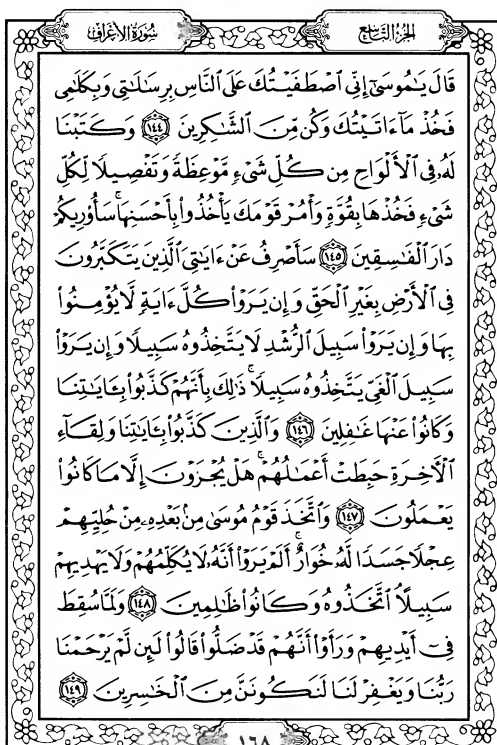 الجزء التاسع
سورة الأعراف
قَالَ يَٰمُوسَىٰٓ إِنِّي ٱصْطَفَيْتُكَ عَلَى ٱلنَّاسِ بِرِسَٰلَٰتِي وَبِكَلَٰمِي
فَخُذْ مَآ ءَاتَيْتُكَ وَكُن مِّنَ ٱلشَّٰكِرِينَ ١٤٤ وَكَتَبْنَا
لَهُۥ فِي ٱلْأَلْوَاحِ مِن كُلِّ شَيْءٍ مَّوْعِظَةً وَتَفْصِيلًا لِّكُلِّ
شَيْءٍ فَخُذْهَا بِقُوَّةٍ وَأْمُرْ قَوْمَكَ يَأْخُذُوا۟ بِأَحْسَنِهَا ۚ سَأُو۟رِيكُمْ
دَارَ ٱلْفَٰسِقِينَ ١٤٥ سَأَصْرِفُ عَنْ ءَايَٰتِيَ ٱلَّذِينَ يَتَكَبَّرُونَ
فِي ٱلْأَرْضِ بِغَيْرِ ٱلْحَقِّ وَإِن يَرَوْا۟ كُلَّ ءَايَةٍ لَّا يُؤْمِنُوا۟
بِهَا وَإِن يَرَوْا۟ سَبِيلَ ٱلرُّشْدِ لَا يَتَّخِذُوهُ سَبِيلًا وَإِن يَرَوْا۟
سَبِيلَ ٱلْغَيِّ يَتَّخِذُوهُ سَبِيلًا ۚ ذَٰلِكَ بِأَنَّهُمْ كَذَّبُوا۟ بِـَٔايَٰتِنَا
وَكَانُوا۟ عَنْهَا غَٰفِلِينَ ١٤٦ وَٱلَّذِينَ كَذَّبُوا۟ بِـَٔايَٰتِنَا وَلِقَآءِ
ٱلْءَاخِرَةِ حَبِطَتْ أَعْمَٰلُهُمْ ۚ هَلْ يُجْزَوْنَ إِلَّا مَا كَانُوا۟
يَعْمَلُونَ ١٤٧ وَٱتَّخَذَ قَوْمُ مُوسَىٰ مِنۢ بَعْدِهِۦ مِنْ حُلِيِّهِمْ
عِجْلًا جَسَدًا لَّهُۥ خُوَارٌ ۚ أَلَمْ يَرَوْا۟ أَنَّهُۥ لَا يُكَلِّمُهُمْ وَلَا يَهْدِيهِمْ
سَبِيلًا ۘ ٱتَّخَذُوهُ وَكَانُوا۟ ظَٰلِمِينَ ١٤٨ وَلَمَّا سُقِطَ
فِيٓ أَيْدِيهِمْ وَرَأَوْا۟ أَنَّهُمْ قَدْ ضَلُّوا۟ قَالُوا۟ لَئِن لَّمْ يَرْحَمْنَا
رَبُّنَا وَيَغْفِرْ لَنَا لَنَكُونَنَّ مِنَ ٱلْخَٰسِرِينَ ١٤٩
١٦٨